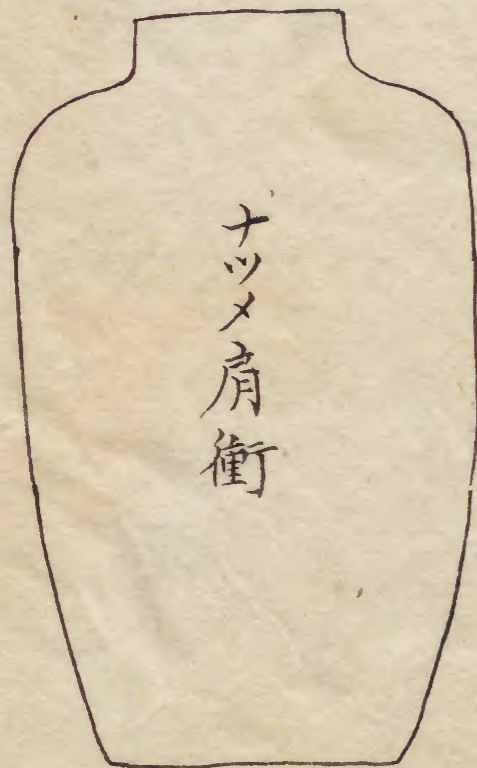 ナツメ肩衝